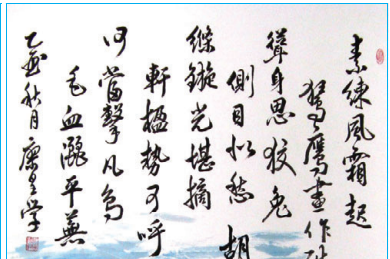 素練風霜起
鷹畫作殊
聳身思狡兔
側目似愁胡
絛鏇光堪摘
軒楹勢可呼
何當擊凡鳥
毛血灑平蕪
乙酉秋月康学